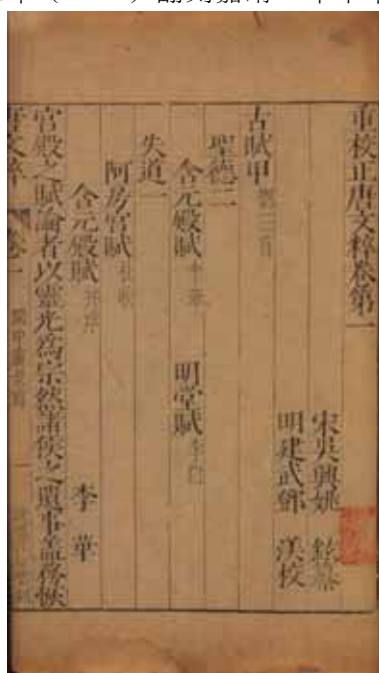 重校正唐文粹卷第一
宋吳興姚 鉉纂
明建武鄧 渼校
古賦甲 總三首
聖德二
含元殿賦 李華 明堂賦 李白
失道一
阿房宮賦 杜牧
含元殿賦 并序 李 華
宮殿之賦論者以靈光為宗然諸侯之遺事蓋務恢
唐文粹 卷一